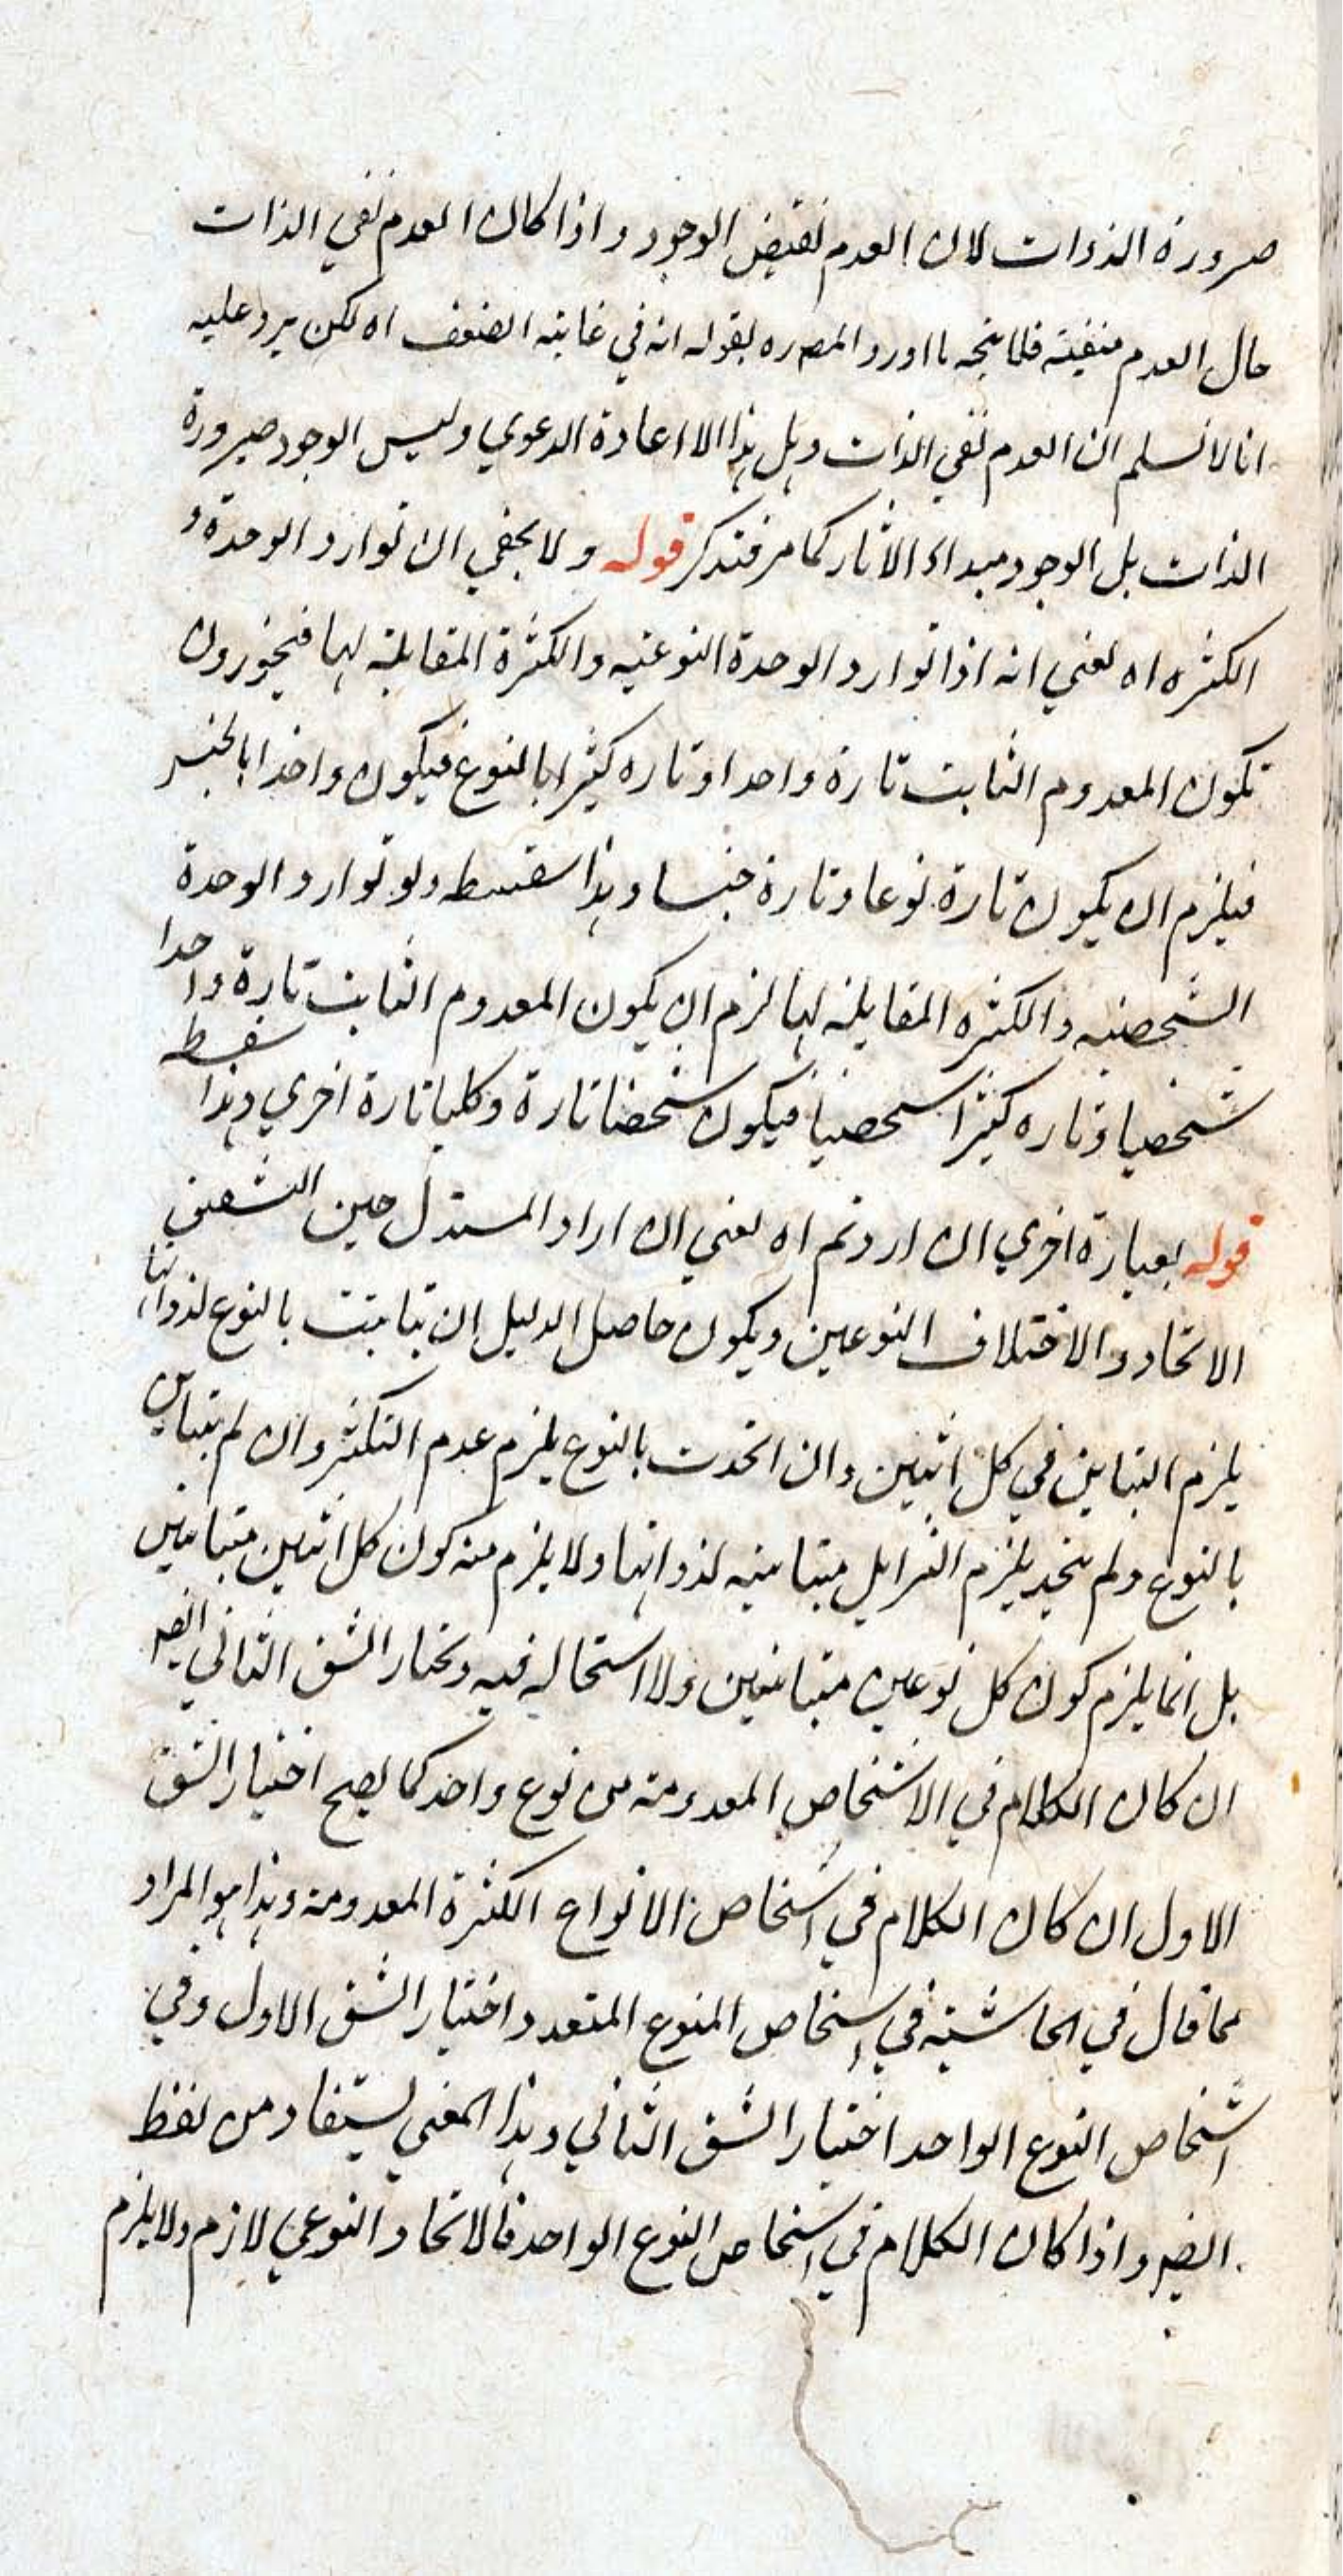 صرورة الذوات لان العدم نقيض الوجود واذا كان العدم نفي الذات
حال العدم منفيته فلا يتجه ما اورد المصره بقوله انه في غايته الضعف اه لكن يرد عليه
انا لا نسلم ان العدم نفي الذات وهل هذا الا اعادة الدعوي وليس الوجود صيرورة
الذات بل الوجود مبداء الاثار كما مر فتذكر قوله ولا يخفي ان توارد الوحدة و
الكثره اه يعني انه اذا توارد الوحدة النوعيه والكثرة المقابلة لها فيجوزون
تكون المعدوم الثابت تارة واحدا وتاره كثيرا بالنوع فيكون واحدا بالجنس
فيلزم ان يكون تارة نوعا وتارة جنسا وهذا سفسطه ولو توارد الوحدة
الشخصيه والكثره المقابلة لها لزم ان يكون المعدوم الثابت تارة واحدا
شخصيا وتاره كثيرا شخصيا فيكون شخصا تارة وكليا تارة اخري وهذا سفسطه
قوله بعبارة اخري ان اردتم اه يعني ان اراد المستدل حين الشقين
الاتحاد والاختلاف النوعين ويكون حاصل الدليل ان تباينت بالنوع لذواتها
يلزم التباين في كل اثنين وان اتحدت بالنوع يلزم عدم التكثر وان لم يتباين
بالنوع ولم يتحد يلزم التزايل متباينيه لذواتها ولا يلزم منه كون كل اثنين متباينين
بل انما يلزم كون كل نوعين متباينين ولا استحاله فيه ونختار الشق الثاني ايضه
ان كان الكلام في الاشخاص المعدومة من نوع واحد كما يصح اختيار الشق
الاول ان كان الكلام في اشخاص الانواع الكثرة المعدومة وهذا هو المراد
مما قال في الحاشيته في اشخاص النوع المتعدد اختيار الشق الاول وفي
اشخاص النوع الواحد اختيار الشق الثاني وهذا المعني يستفاد من لفظ
ايضه واذا كان الكلام في اشخاص النوع الواحد فالاتحاد النوعي لازم ولا يلزم